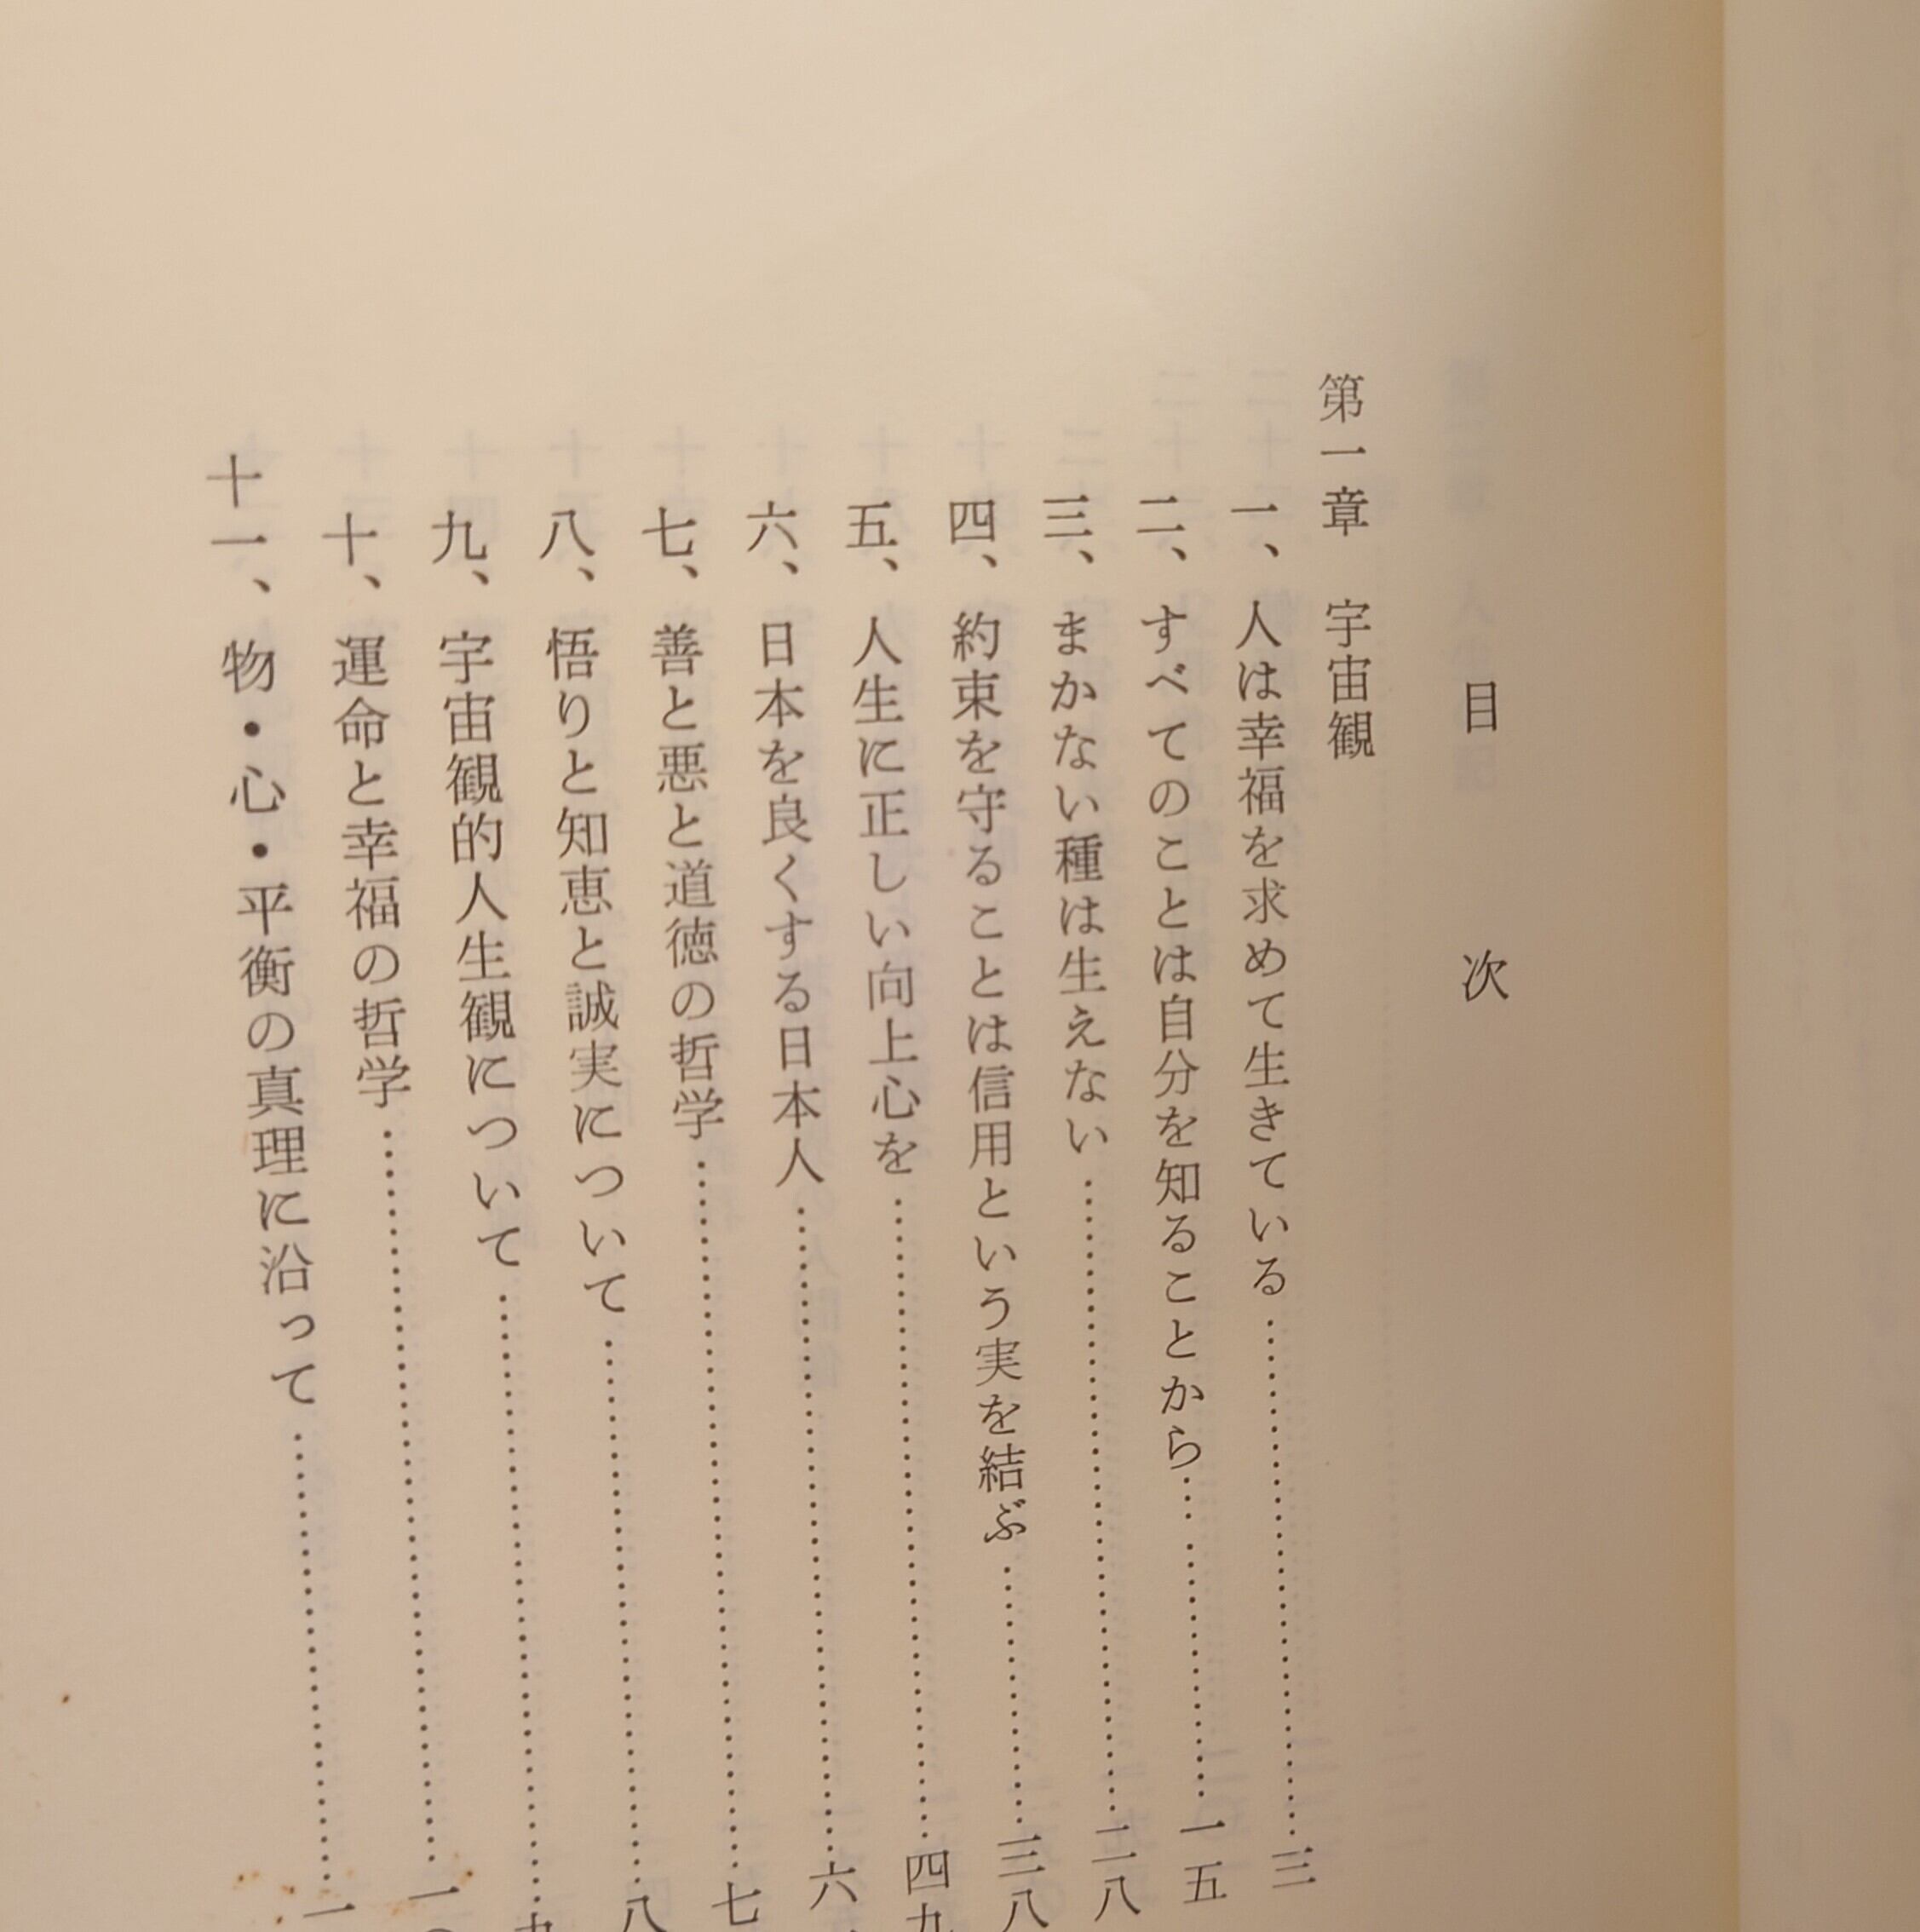 目次
第一章 宇宙観
一、人は幸福を求めて生きている……三
二、すべてのことは自分を知ることから……一五
三、まかない種は生えない……二八
四、約束を守ることは信用という実を結ぶ……三八
五、人生に正しい向上心を……四九
六、日本を良くする日本人……六
七、善と悪と道徳の哲学……七
八、悟りと知恵と誠実について……八
九、宇宙観的人生観について……九
十、運命と幸福の哲学……一〇
十一、物・心・平衡の真理に沿って……一